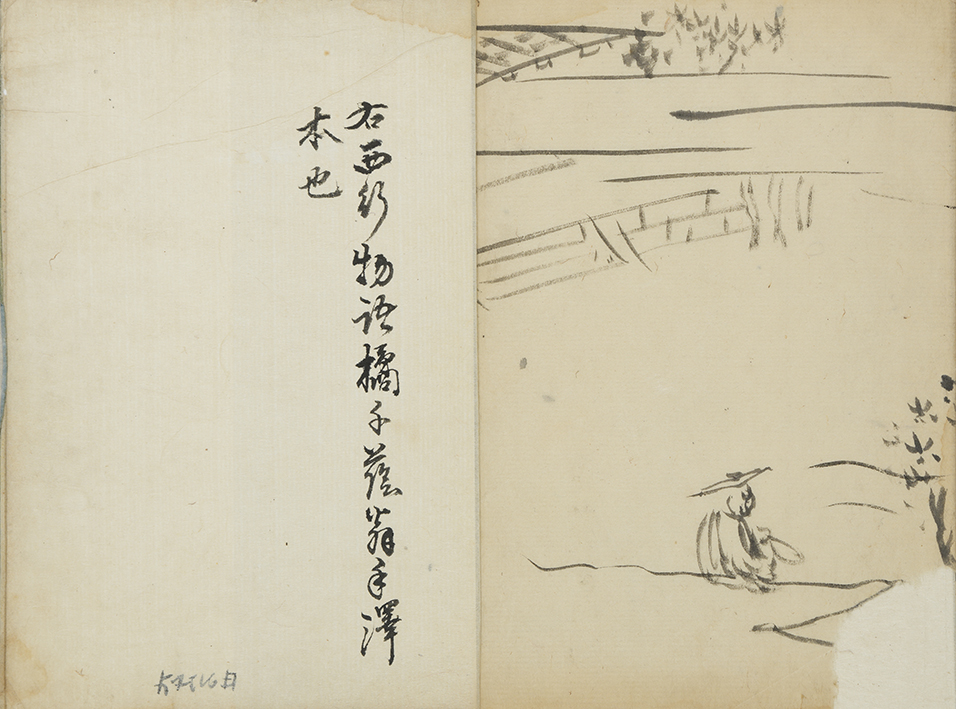 右西行物語橘千蔭翁手澤
本也